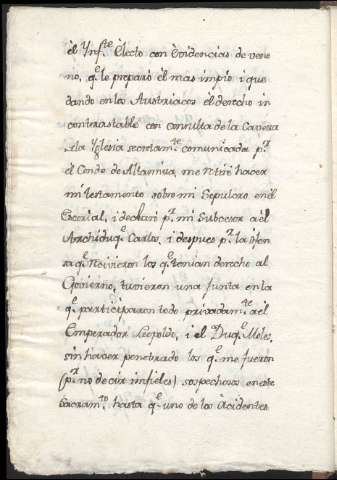 el Ynf.te Electo con Evidencias de vene
no, q.e le preparó el mas impio i que
dando en los Austriacos el derecho in
contrastable con consulta de la Caveza
de la Yglesia secretam.te comunicada p.r
el Conde de Altamira me retiré hacer
mi testamento sobre mi Sepulcro en el
Escorial, i declaré p.r mi Subcesor a el
Archiduq.e Carlos, i despues p.r la
sa q.e hicieron los q.e tenian derecho al
Govierno, tuvieron una junta en la
q.e participaron todo privadam.te a el
Emperador Leopoldo, i el Duq.e Moles,
sin haver penetrado los q.e me fueron
(p.r no decir infieles) sospechosos en este
Sacram.to hasta q.e uno de los Acidentes